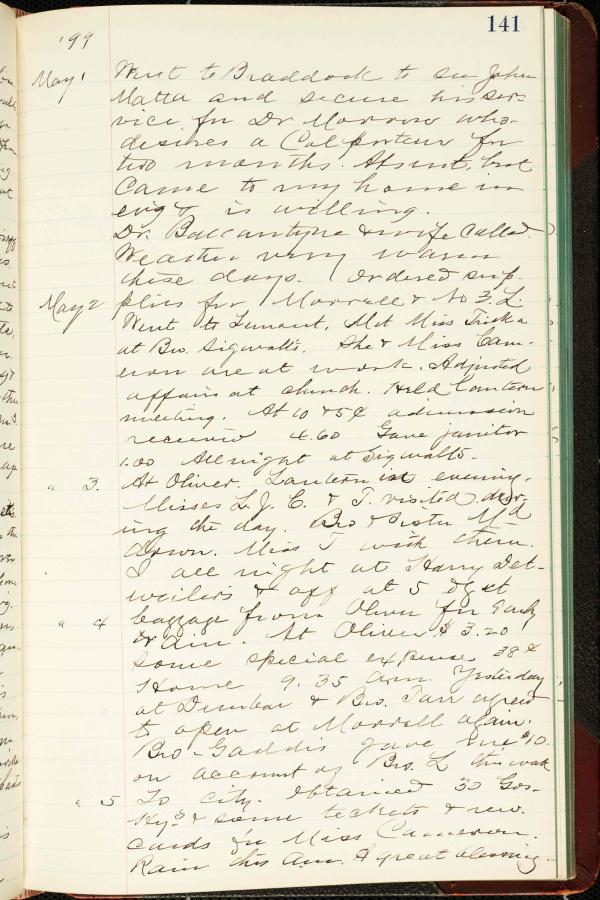 141
'99
May 1 Went to Braddock to see John
Matta and secure his ser-
vice for Dr Morrow who
desires a Colporteur for
two months. Absent, but
came to my home in
evig & is willing.
Dr. Ballantyne & wife called.
Weather very warm
these days. Ordered sup-
plies for Morrell & No 3. L.
May 2 Went to Lemont. Met Miss
at Bro. Sigwalts. She & Miss Cam-
eron are at work. Adjusted
affairs at church. Held Lantern
meeting. At 10 & 5¢ admission
received 4.60 Gave janitor
1.00 All night at Sigwalts.
" 3. At Oliver. Lantern evening.
Misses L. J. C. & T. visited dur-
ing the day. Bro & Sister Mc
down. Miss T with them.
I all night at Harry Det-
weilers & off at 5 to get
baggage from Oliver for Early
" 4 train. At Oliver $3.20
some special expense 38¢
Home 9.35 am. Yesterday
at Dunbar & Bro. Tarr agreed
to open at Morrell again.
Bro Gaddis gave me $10.
on account of Bro. L this week
" 5 To city. Obtained 30 Gos-
& some tickets & rew.
cards for Miss Cameron.
Rain this am. A great blessing.